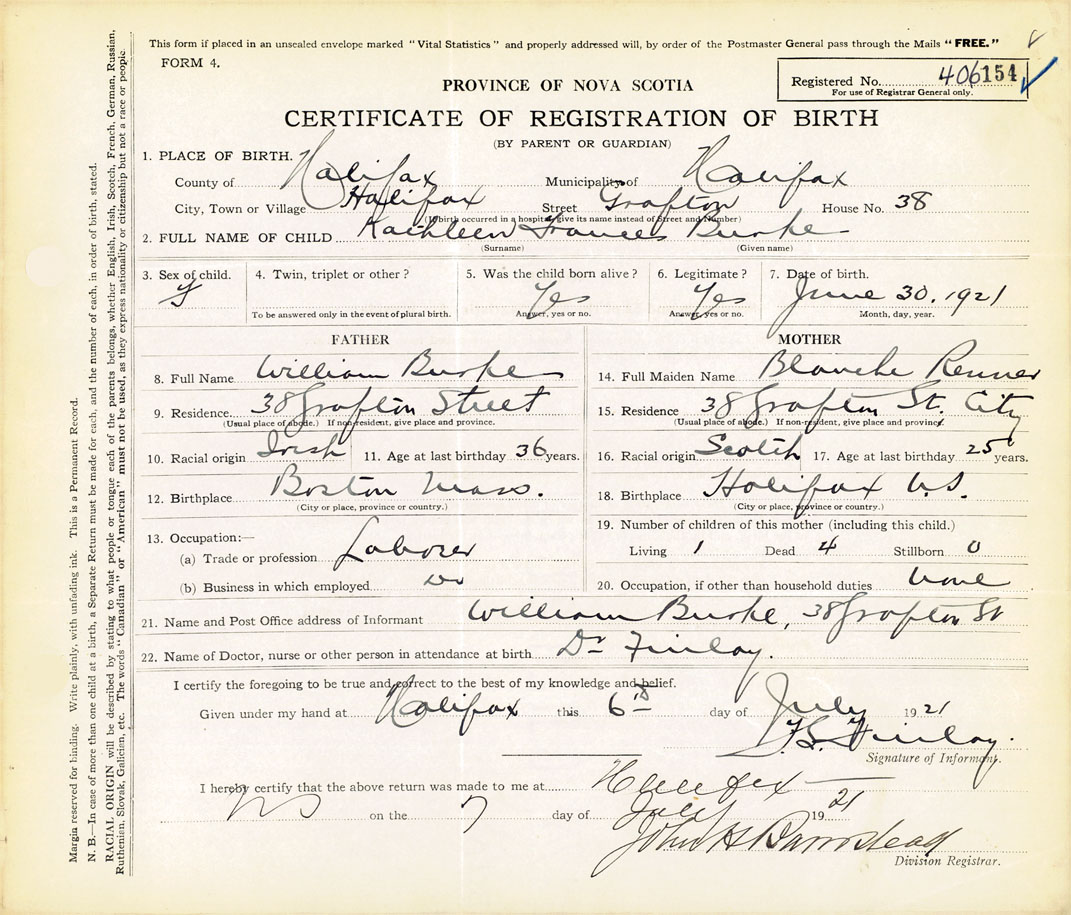 This form if placed in an unsealed envelope marked "Vital Statistics" and properly addressed will, by order of the Postmaster General pass through the Mails "FREE."
FORM 4.
Registered No. 406154
For use of Registrar General only.
PROVINCE OF NOVA SCOTIA
CERTIFICATE OF REGISTRATION OF BIRTH
(BY PARENT OR GUARDIAN)
1. PLACE OF BIRTH.
County of Halifax Municipality of Halifax
City, Town or Village Halifax Street Grafton House No. 38
(If birth occurred in a hospital give its name instead of Street and Number)
2. FULL NAME OF CHILD Kathleen Frances Burke
(Surname) (Given name)
3. Sex of child. 4. Twin, triplet or other? 5. Was the child born alive? 6. Legitimate? 7. Date of birth.
f Yes Yes June 30. 1921
To be answered only in the event of plural birth. Answer, yes or no. Answer, yes or no. Month, day, year.
FATHER
8. Full Name William Burke
9. Residence. 38 Grafton Street
(Usual place of abode.) If non-resident, give place and province.
10. Racial origin Irish 11. Age at last birthday 36 years.
12. Birthplace Boston Mass.
(City or place, province or country.)
13. Occupation:—
(a) Trade or profession Laborer
(b) Business in which employed. Do
MOTHER
14. Full Maiden Name Blanche Renner
15. Residence 38 Grafton St. City
(Usual place of abode.) If non-resident, give place and province.
16. Racial origin Scotch 17. Age at last birthday 25 years.
18. Birthplace Halifax N.S.
(City or place, province or country.)
19. Number of children of this mother (including this child.)
Living 1 Dead 4 Stillborn 0
20. Occupation, if other than household duties None
21. Name and Post Office address of Informant William Burke, 38 Grafton St
22. Name of Doctor, nurse or other person in attendance at birth Dr Finlay.
I certify the foregoing to be true and correct to the best of my knowledge and belief.
Given under my hand at Halifax this 6th day of July 1921
F.S. Finlay.
Signature of Informant.
I hereby certify that the above return was made to me at Halifax
NS on the 7 day of July 1921
John H Barnstead
Division Registrar.
Margin reserved for binding. Write plainly, with unfading ink. This is a Permanent Record.
N. B.—In case of more than one child at a birth, a Separate Return must be made for each, and the number of each, in order of birth, stated.
RACIAL ORIGIN will be described by stating to what people or tongue each of the parents belongs, whether English, Irish, Scotch, French, German, Russian,
Ruthenian, Slovak, Galician, etc. The words "Canadian" or "American" must not be used, as they express nationality or citizenship but not a race or people.